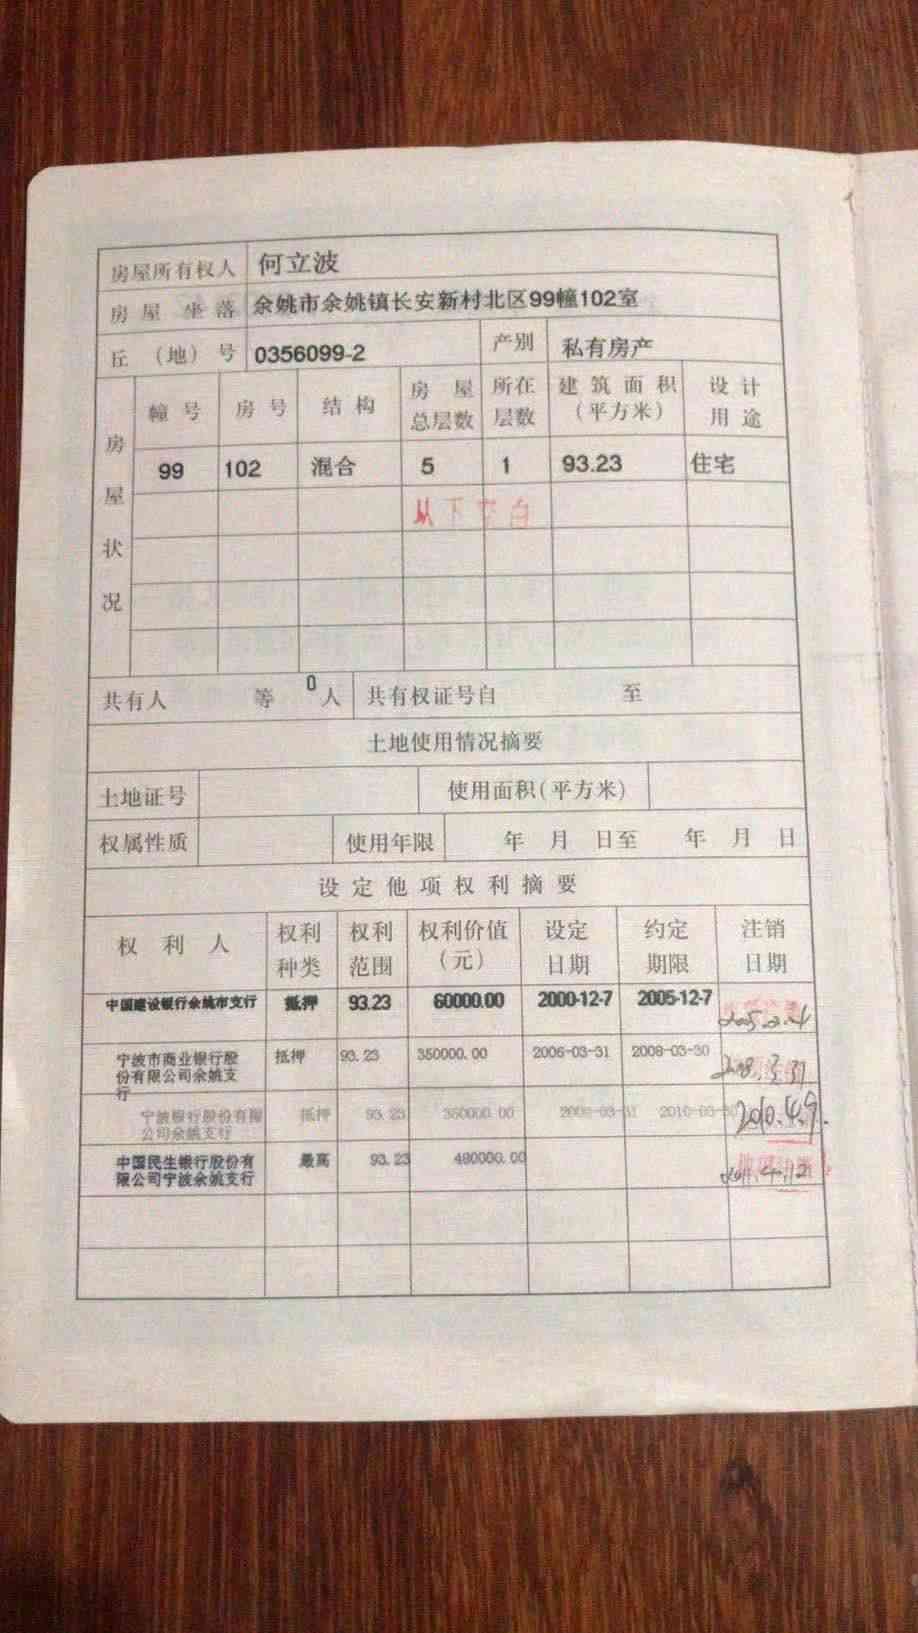 房屋所有权人 何立波
房屋坐落 余姚市余姚镇长安新村北区99幢102室
丘（地）号 0356099-2 产别 私有房产
房屋状况
幢号 房号 结构 房屋总层数 所在层数 建筑面积（平方米） 设计用途
99 102 混合 5 1 93.23 住宅
从下空白
共有人 等 0 人 共有权证号自 至
土地使用情况摘要
土地证号 使用面积(平方米)
权属性质 使用年限 年 月 日至 年 月 日
设定他项权利摘要
权利人 权利种类 权利范围 权利价值（元） 设定日期 约定期限 注销日期
中国建设银行余姚市支行 抵押 93.23 60000.00 2000-12-7 2005-12-7 2005.2.4
宁波市商业银行股 抵押 93.23 350000.00 2006-03-31 2008-03-30 2008.3.31
份有限公司余姚支
行
宁波银行股份有限 抵押 93.23 350000.00 2008-03-31 2010-03-30 2010.4.9
公司余姚支行
中国民生银行股份有 最高 93.23 490000.00 2011.4.12
限公司宁波余姚支行